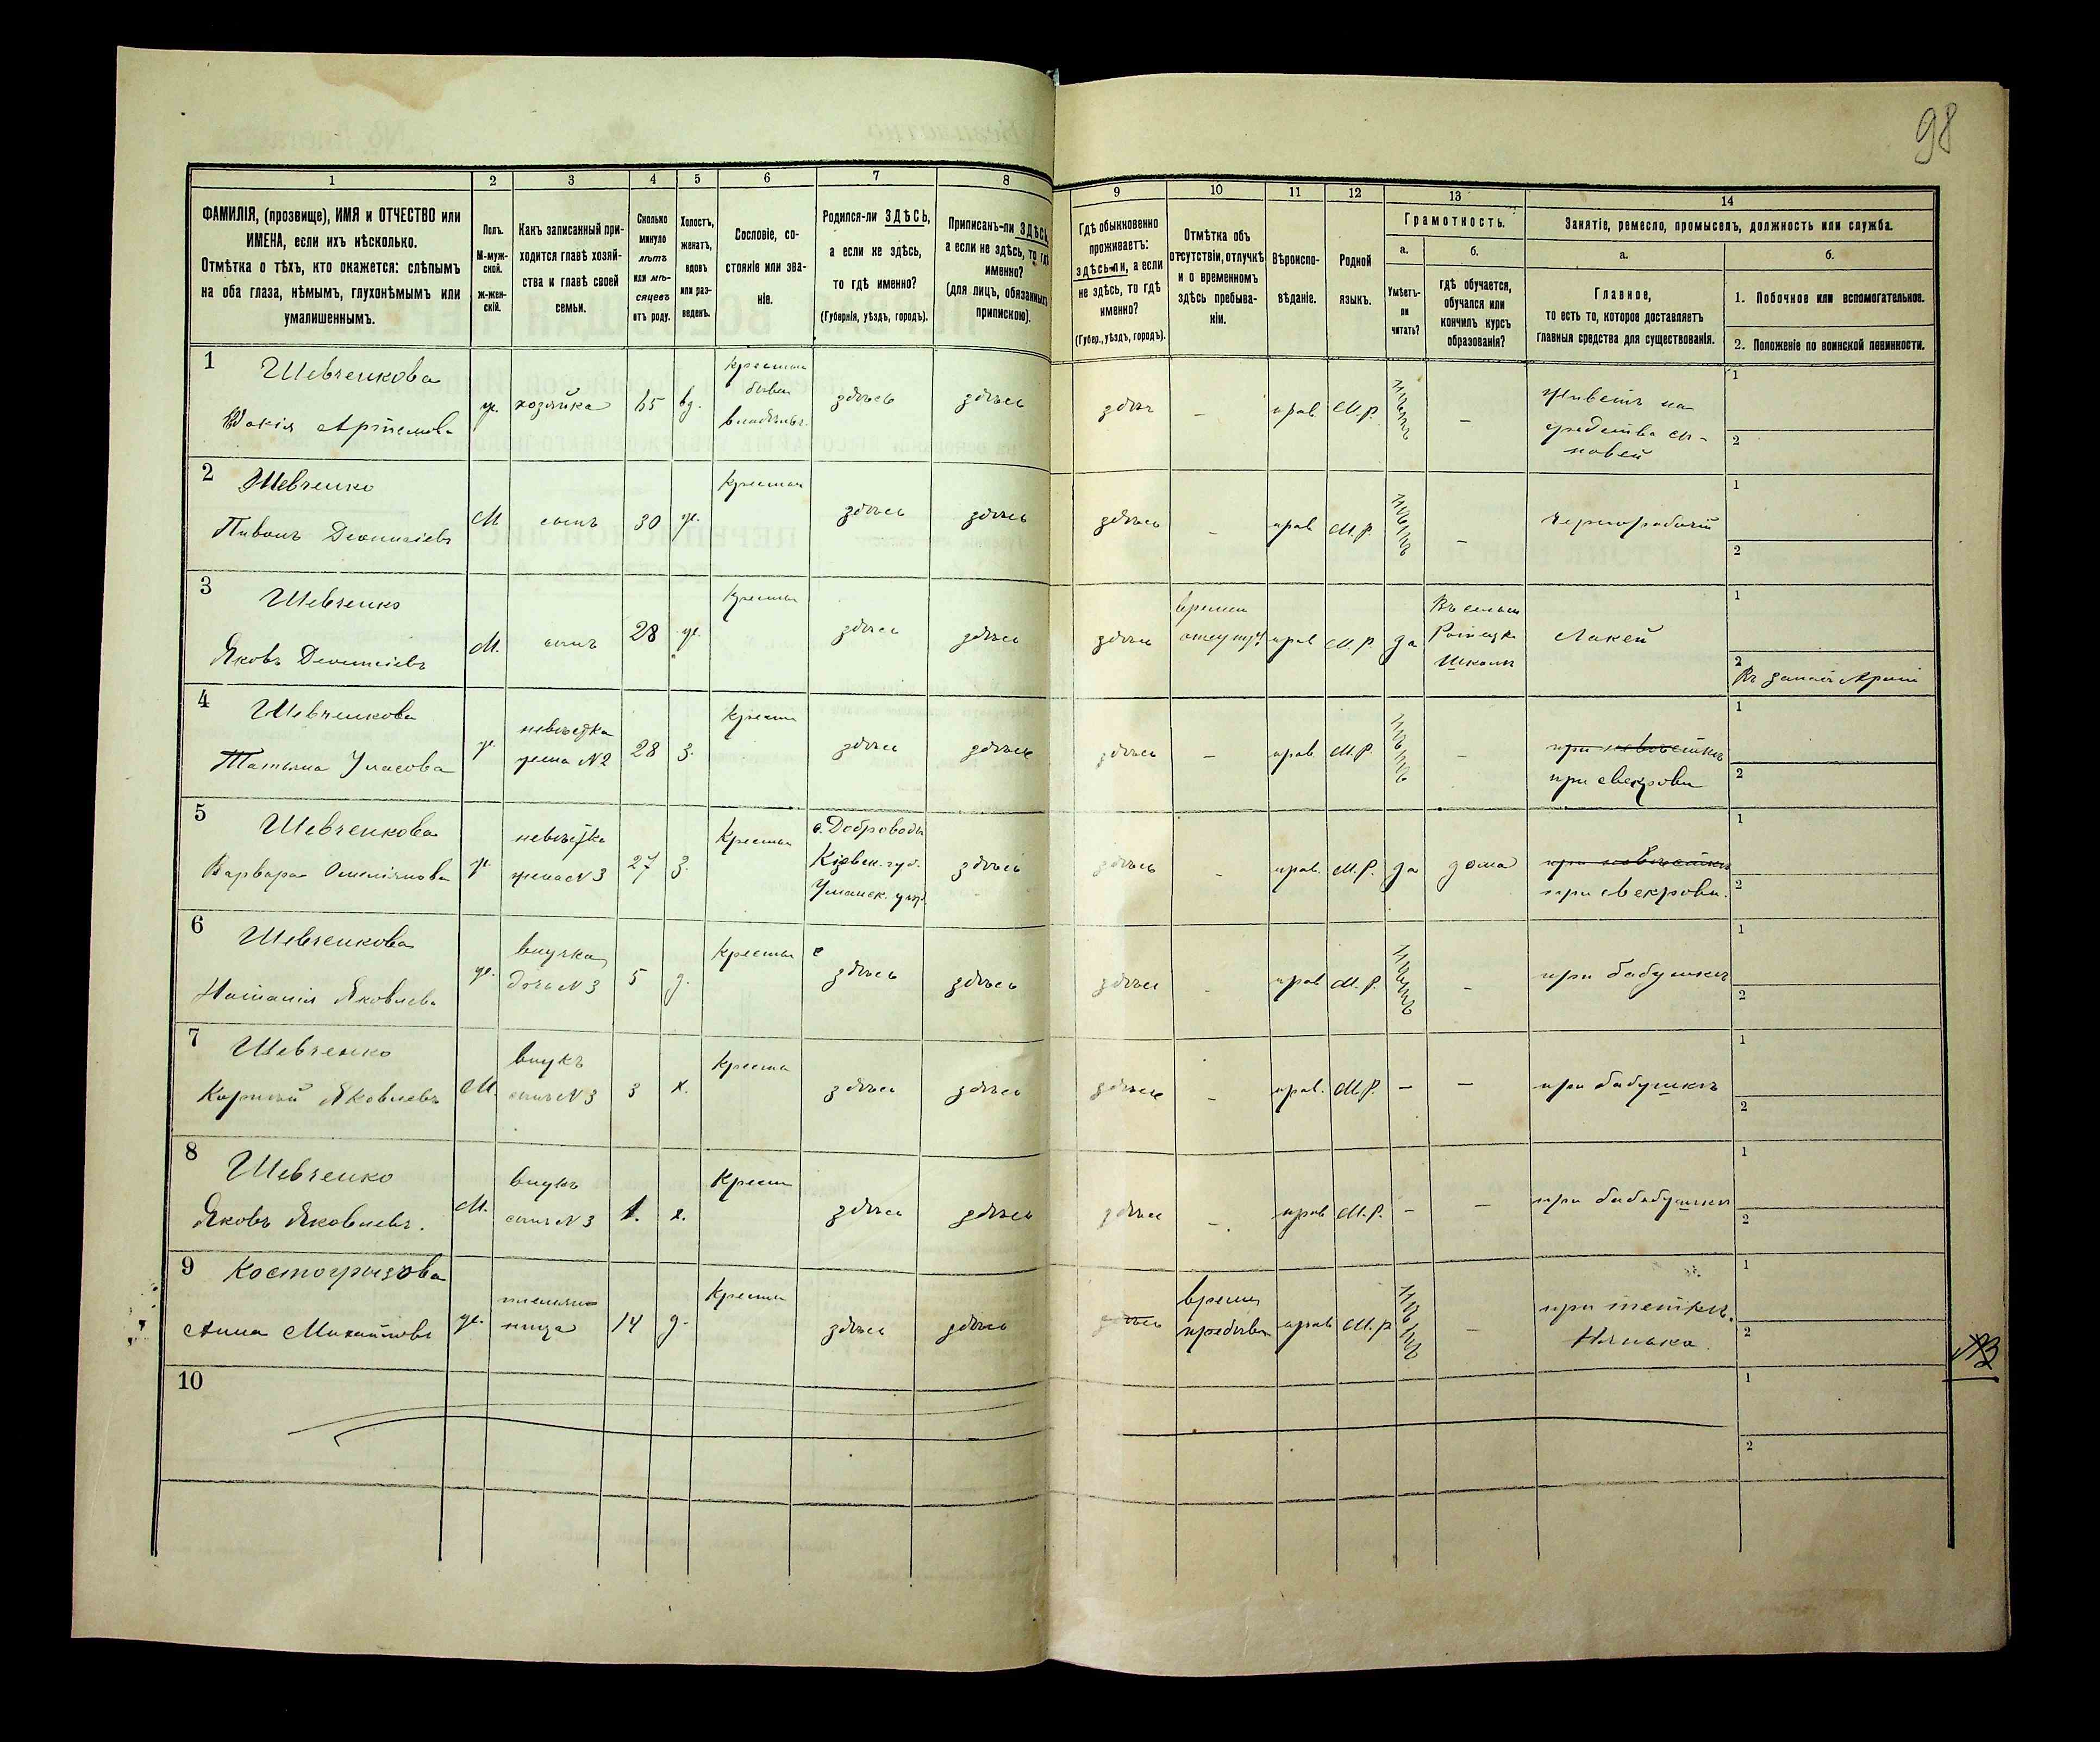 98
1 2 3 4 5 6 7 8 9 10 11 12 13 14
ФАМИЛІЯ, (прозвище), ИМЯ и ОТЧЕСТВО или ИМЕНА, если ихъ нѣсколько.
Отмѣтка о тѣхъ, кто окажется: слѣпымъ на оба глаза, нѣмымъ, глухонѣмымъ или умалишеннымъ.
Полъ. М-мужской. ж-женскій.
Какъ записанный приходится главѣ хозяйства и главѣ своей семьи.
Сколько минуло лѣтъ или мѣсяцевъ отъ роду.
Холостъ, женатъ, вдовъ или разведенъ.
Сословіе, состояніе или званіе.
Родился-ли ЗДѢСЬ, а если не здѣсь, то гдѣ именно?
(Губернія, уѣздъ, городъ).
Приписанъ-ли ЗДѢСЬ, а если не здѣсь, то гдѣ именно?
(для лицъ, обязанныхъ припискою).
Гдѣ обыкновенно проживаетъ: здѣсь-ли, а если не здѣсь, то гдѣ именно?
(Губер., уѣздъ, городъ).
Отмѣтка объ отсутствіи, отлучкѣ и о временномъ здѣсь пребываніи.
Вѣроисповѣданіе.
Родной языкъ.
Грамотность.
а. Умѣетъ-ли читать?
б. гдѣ обучается, обучался или кончилъ курсъ образованія?
Занятіе, ремесло, промыселъ, должность или служба.
а. Главное, то есть то, которое доставляетъ главныя средства для существованія.
б.
1. Побочное или вспомогательное.
2. Положеніе по воинской повинности.
1 Шевченкова
Артемова ж. хозяйка 65 вд. здѣсь здѣсь здѣсь – прав. М.р. – Живетъ на
средства сы-
новей
2 Шевченко
Пивонъ Деонисіевъ М сынъ 30 ж. Крестьян здѣсь здѣсь здѣсь – прав М.р. – Чернорабочій
3 Шевченко
Яковъ Деонисіевъ М. сынъ 28 ж. здѣсь здѣсь здѣсь прав М.р. да школѣ Лакей
4 Шевченкова
Татьяна Уласова ж. невѣстка
жена №2 28 з. здѣсь здѣсь здѣсь – прав М.р. – при невѣсткѣ
при свекрови
5 Шевченкова
Варвара ж. невѣстка
жена №3 27 з. с. Доброводы
Кіевск. губ.
Уманск. уѣз. здѣсь здѣсь – прав. М.р. да дома при невѣсткѣ
при свекрови.
6 Шевченкова
Наталія Яковлева ж. внучка
дочь №3 5 д. здѣсь здѣсь здѣсь – прав М.р. – при бабушкѣ
7 Шевченко
Яковлевъ М. внукъ
сынъ №3 3 х. здѣсь здѣсь здѣсь – прав. М.р. – – при бабушкѣ
8 Шевченко
Яковъ Яковлевъ. М. внукъ
сынъ №3 1. х. здѣсь здѣсь здѣсь – прав М.р. – –
9 Костогризова
Анна Михайлова ж. племян-
ница 14 д. здѣсь здѣсь здѣсь времен
пребыв прав М.р – при теткѣ.
Нянька.
10